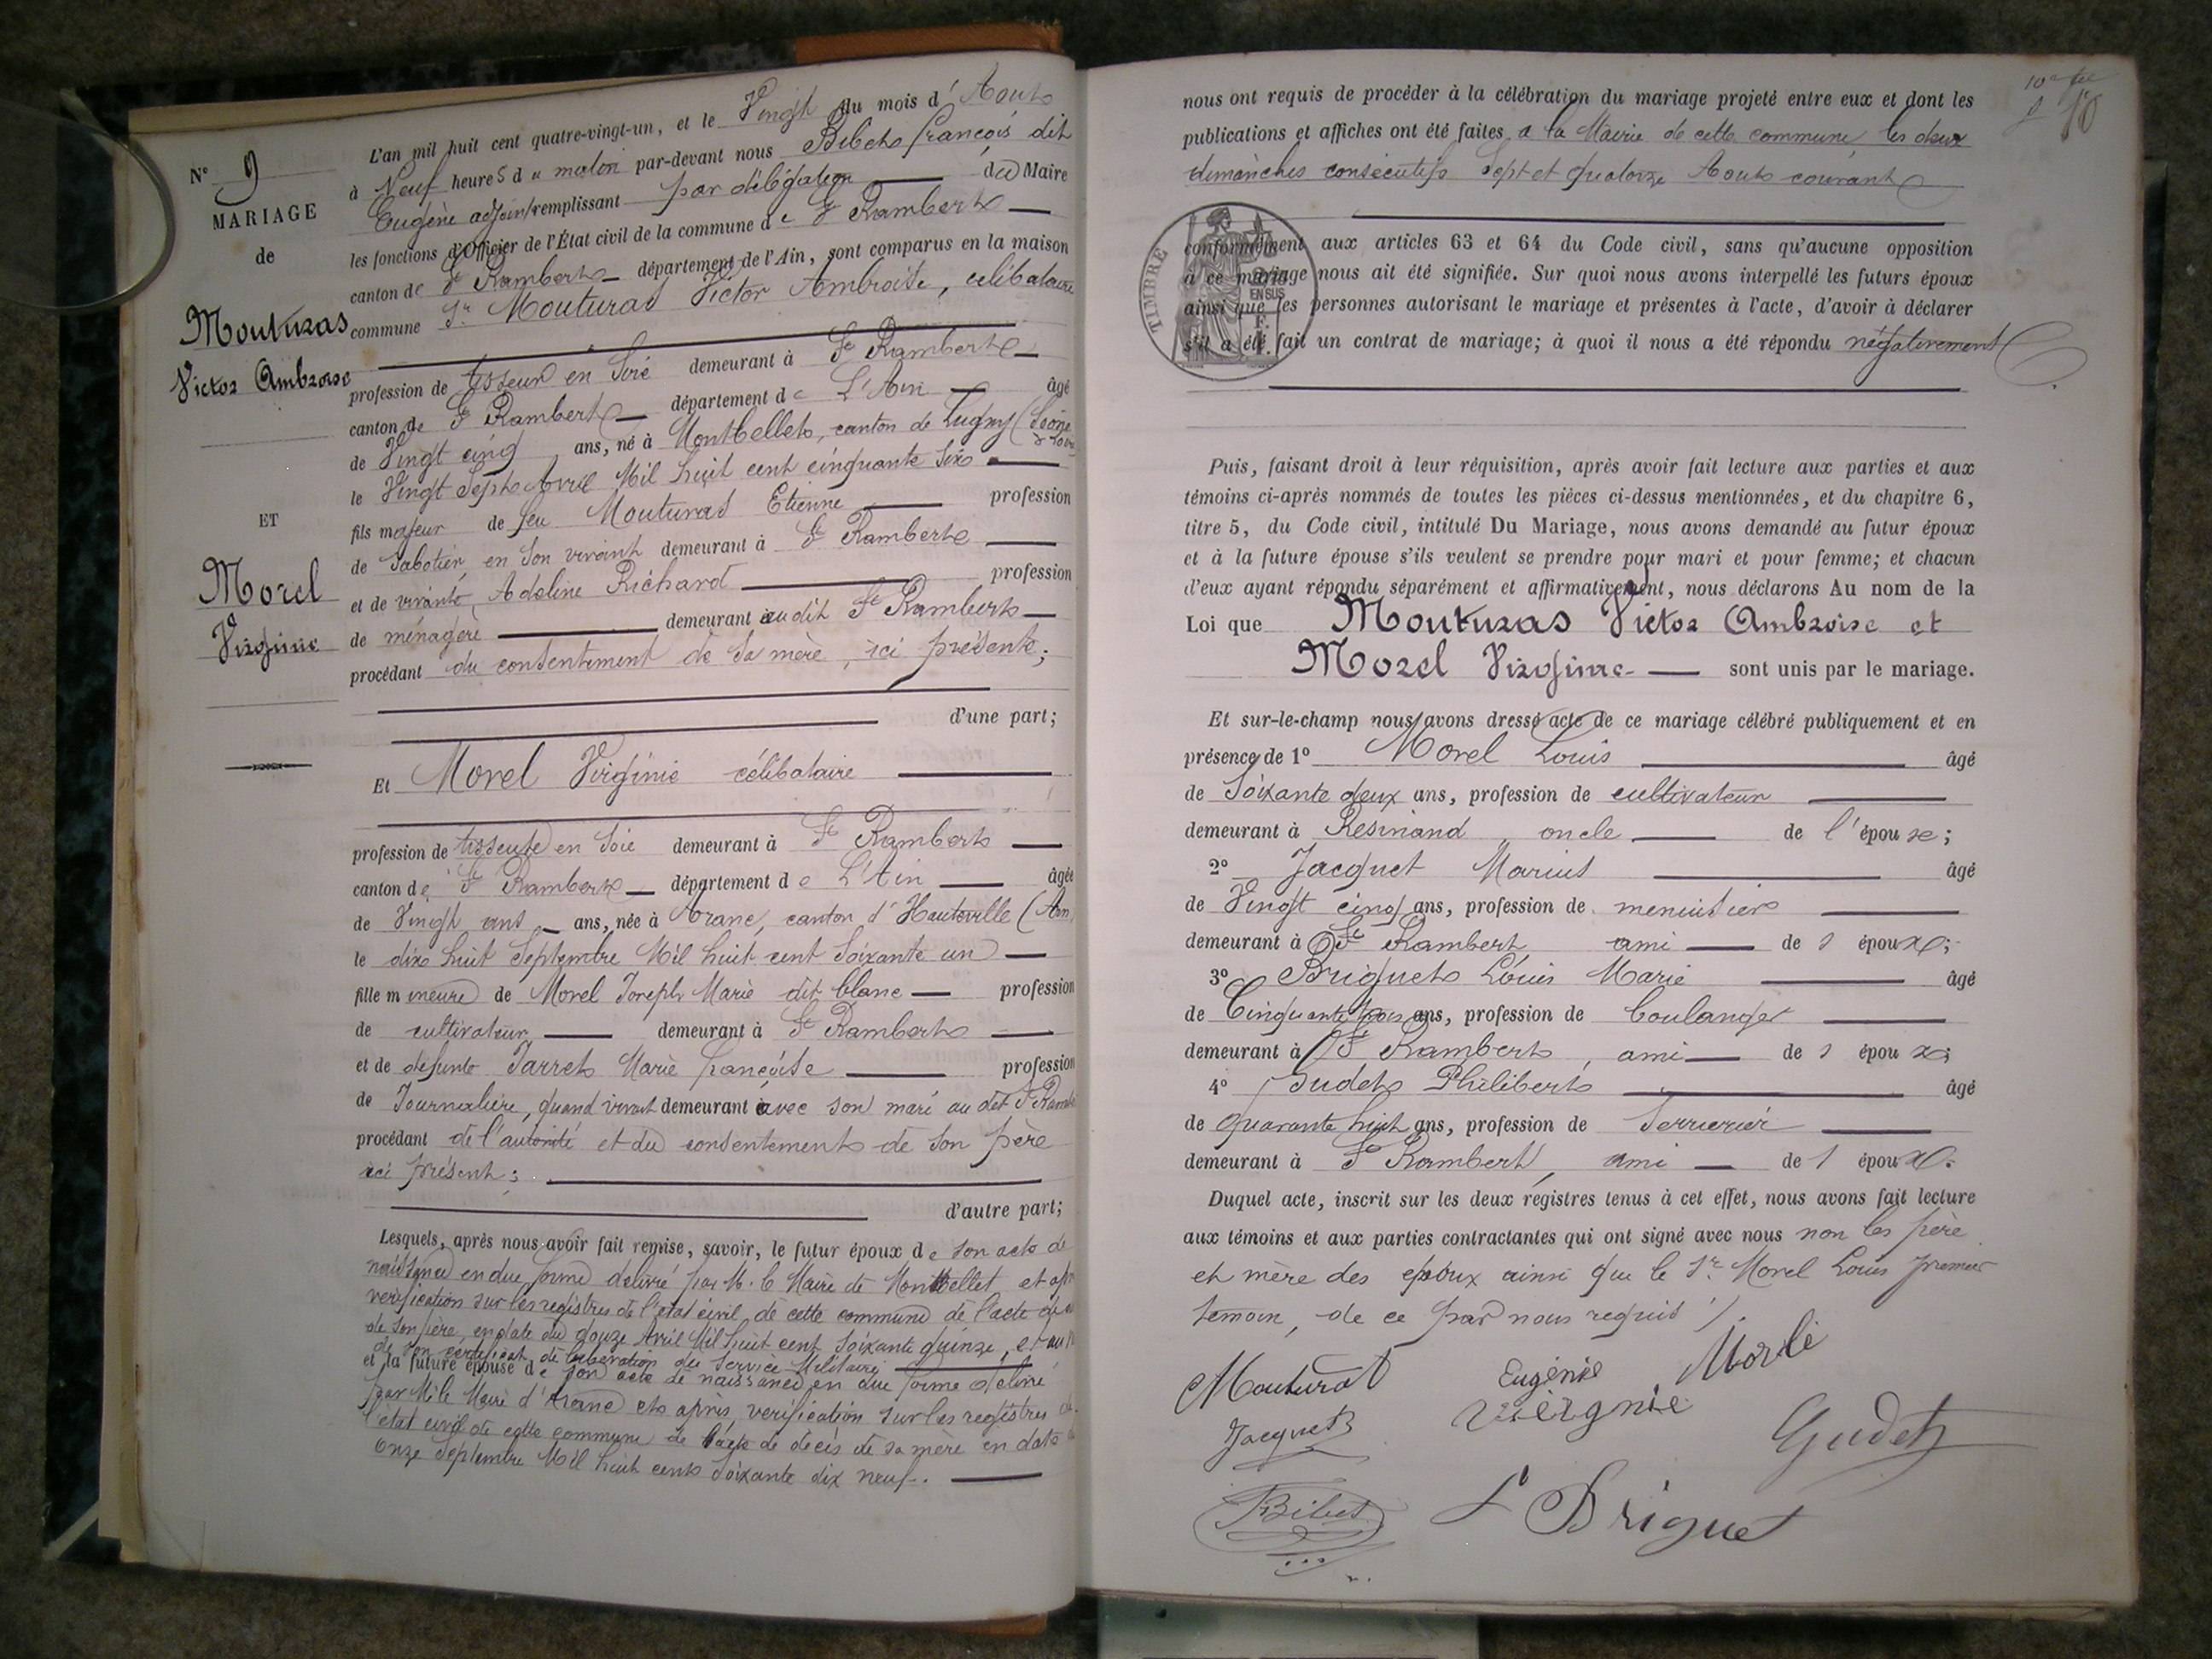 N° 9
MARIAGE
de
Mouturas
Victor Ambroise
ET
Morel
Virginie
L'an mil huit cent quatre-vingt-un, et le Vingt du mois d'Aout
à Neuf heures du matin par-devant nous Bibet françois dit
Eugène adjoint remplissant par délégation du Maire
les fonctions d'Officier de l'État civil de la commune de St Rambert
canton de St Rambert département de l'Ain, sont comparus en la maison
commune Sr Mouturas Victor Ambroise, célibataire
profession de tisseur en Soie demeurant à St Rambert
canton de St Rambert département de L'Ain âgé
de Vingt cinq ans, né à Montbellet, canton de Lugny (Saône & Loire
le Vingt Sept Avril Mil huit cent cinquante Six
fils majeur de feu Mouturas Etienne profession
de Sabotier en Son vivant demeurant à St Rambert
et de vivante, Adeline Richard profession
de ménagère demeurant audit St Rambert
procédant du consentement de Sa mère, ici présente;
d'une part;
Et Morel Virginie célibataire
profession de tisseuse en Soie demeurant à St Rambert
canton de St Rambert département de L'Ain âgée
de Vingt ans ans, née à Aranc, canton d'Hauteville (Ain)
le dix huit Septembre Mil huit cent Soixante un
fille mineure de Morel Joseph Marie dit blanc profession
de cultivateur demeurant à St Rambert
et de defunte Jarret Marie françoise profession
de Journalière, quand vivait demeurant avec son mari au dit St Rambert
procédant de l'autorité et du consentement de Son père
ici présent;
d'autre part;
Lesquels, après nous avoir fait remise, savoir, le futur époux de Son acte de
naissance en due forme delivré par M. le Maire de Montbellet et apr
verification sur les registres de l'état civil de cette commune de l'acte de
de Son père, en date du douze Avril Mil huit cent Soixante quinze, et
de Son certificat de liberation du Service Militaire
et la future épouse de Son acte de naissance en due forme delivré
par M. le Maire d'Aranc et après verification sur les registres de
l'état civil de cette commune de l'acte de decès de sa mère en date
Onze Septembre Mil huit cent Soixante dix neuf.
10e
10
nous ont requis de procéder à la célébration du mariage projeté entre eux et dont les
publications et affiches ont été faites a la Mairie de cette commune, les deux
dimanches consecutifs Sept et Quatorze Aout courant
TIMBRE
EN SUS
conformément aux articles 63 et 64 du Code civil, sans qu'aucune opposition
à ce mariage nous ait été signifiée. Sur quoi nous avons interpellé les futurs époux
ainsi que les personnes autorisant le mariage et présentes à l'acte, d'avoir à déclarer
s'il a été fait un contrat de mariage; à quoi il nous a été répondu négativement
Puis, faisant droit à leur réquisition, après avoir fait lecture aux parties et aux
témoins ci-après nommés de toutes les pièces ci-dessus mentionnées, et du chapitre 6,
titre 5, du Code civil, intitulé Du Mariage, nous avons demandé au futur époux
et à la future épouse s'ils veulent se prendre pour mari et pour femme; et chacun
d'eux ayant répondu séparément et affirmativement, nous déclarons Au nom de la
Loi que Mouturas Victor Ambroise et
Morel Virginie sont unis par le mariage.
Et sur-le-champ nous avons dressé acte de ce mariage célébré publiquement et en
présence de 1° Morel Louis âgé
de Soixante deux ans, profession de cultivateur
demeurant à Resinand, oncle de l'épouse;
2° Jacquet Marius âgé
de Vingt cinq ans, profession de menuisier
demeurant à St Rambert, ami de l'époux;
3° Briguet Louis Marie âgé
de Cinquante trois ans, profession de boulanger
demeurant à St Rambert, ami de l'époux;
4° Judet Philibert âgé
de Quarante huit ans, profession de Serrurier
demeurant à St Rambert, ami de l'époux.
Duquel acte, inscrit sur les deux régistres tenus à cet effet, nous avons fait lecture
aux témoins et aux parties contractantes qui ont signé avec nous non les père
et mère des époux ainsi que le Sr Morel Louis premier
temoin, de ce par nous requis /.
Mouturat Eugénie Morle
Jacquet Viergnie Gudet
Bibet L Briguet